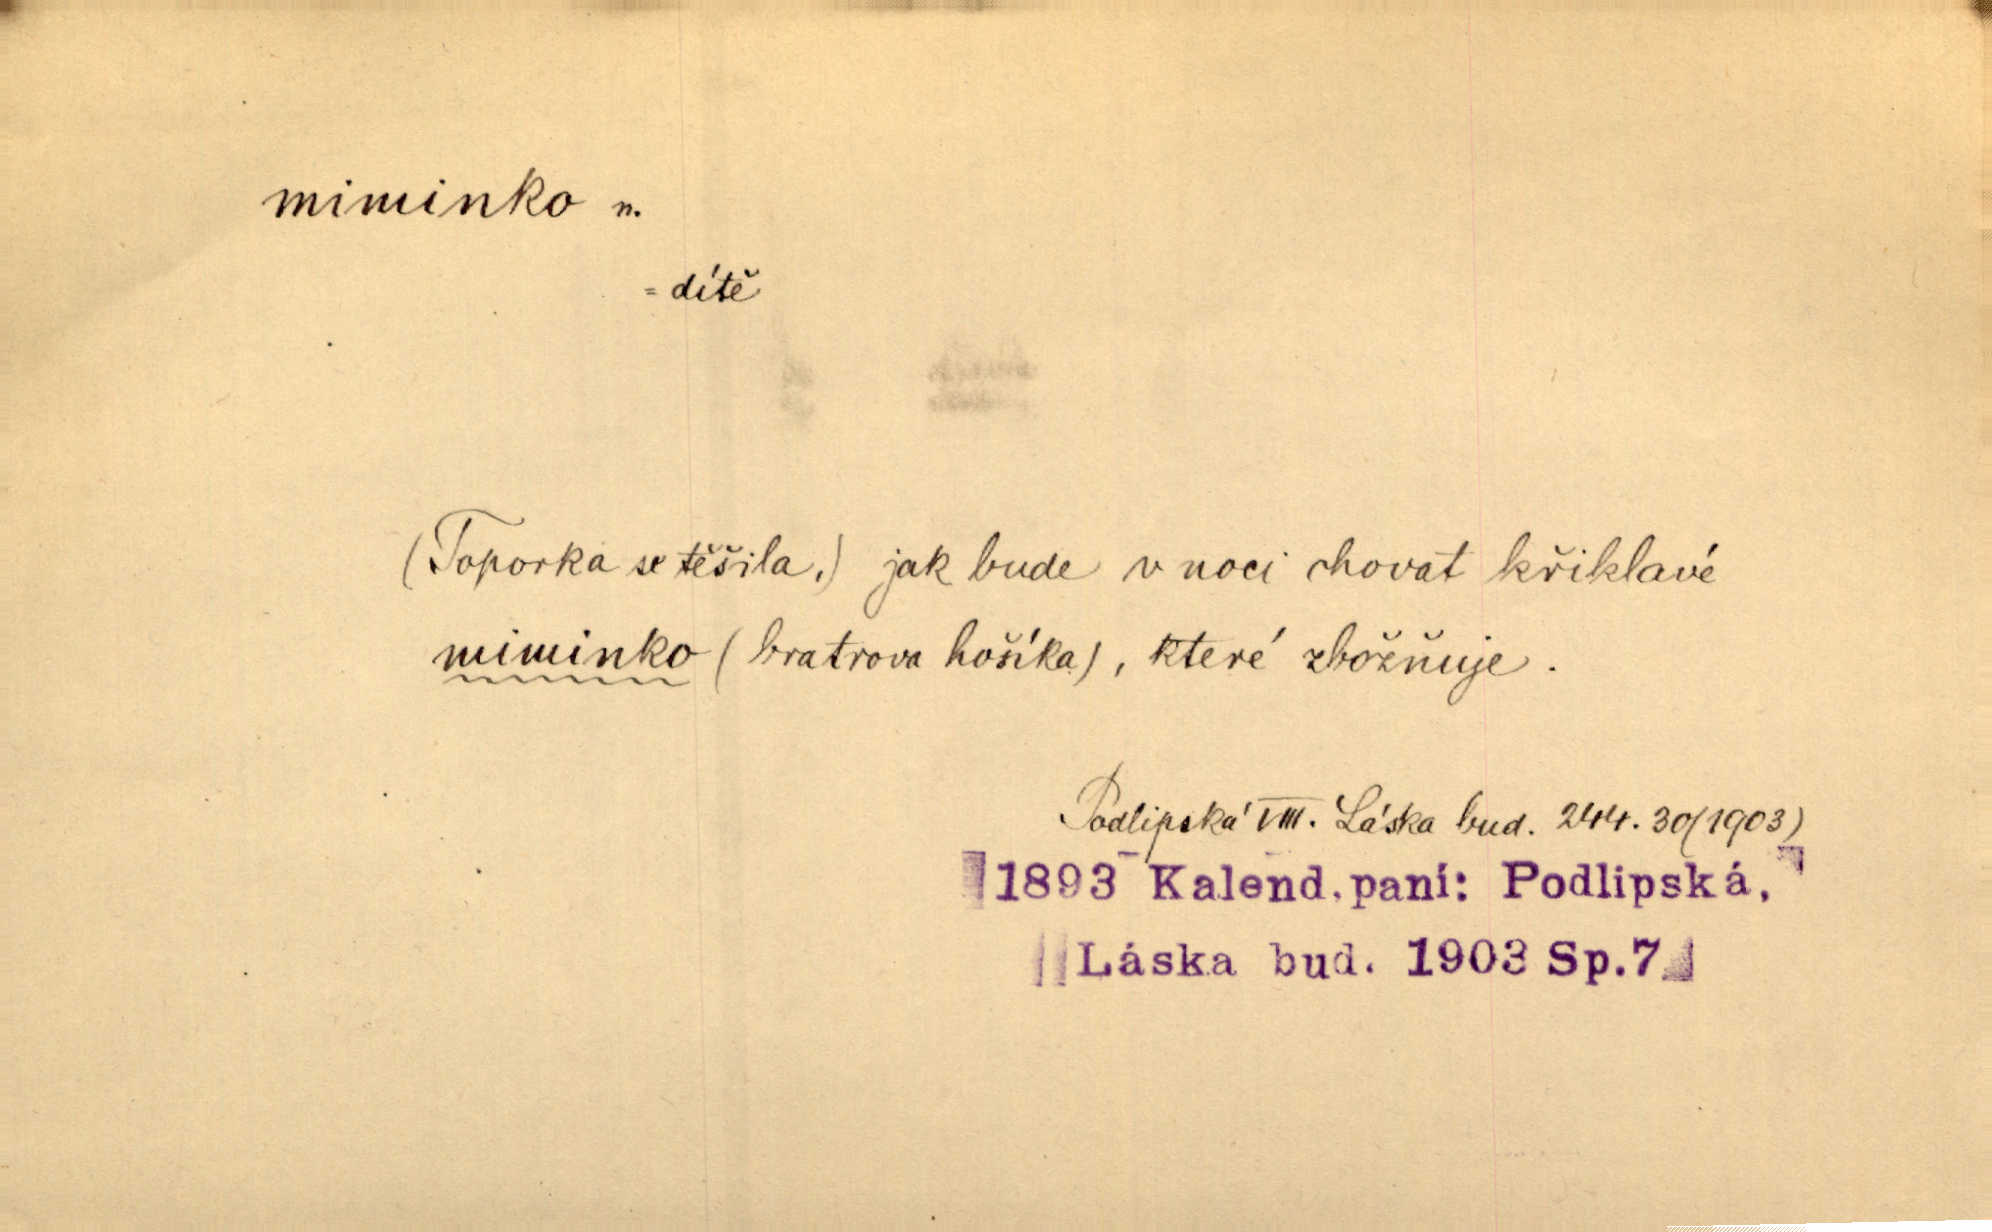 miminko n.
= dítě
(Toporka se těšila,) jak bude v noci chovat křiklavé
miminko (bratrova hošíka), které zbožňuje.
Podlipská VIII. Láska bud. 244. 30 (1903)
1893 Kalend. paní: Podlipská,
Láska bud. 1903 Sp.7